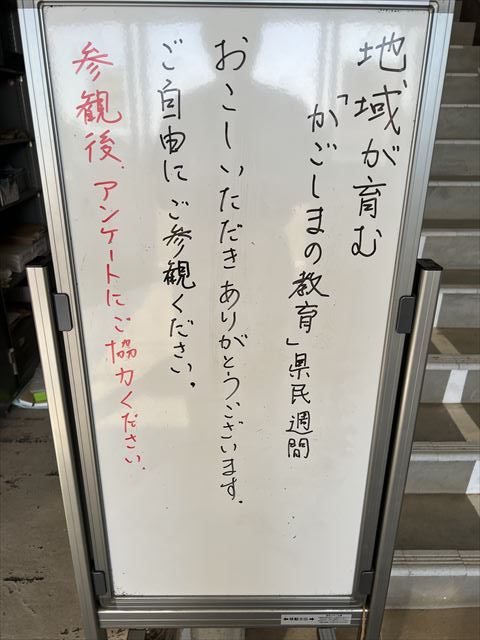 地域が育む
「かごしまの教育」県民週間
おこしいただきありがとうございます。
ご自由にご参観ください。
参観後、アンケートにご協力ください。